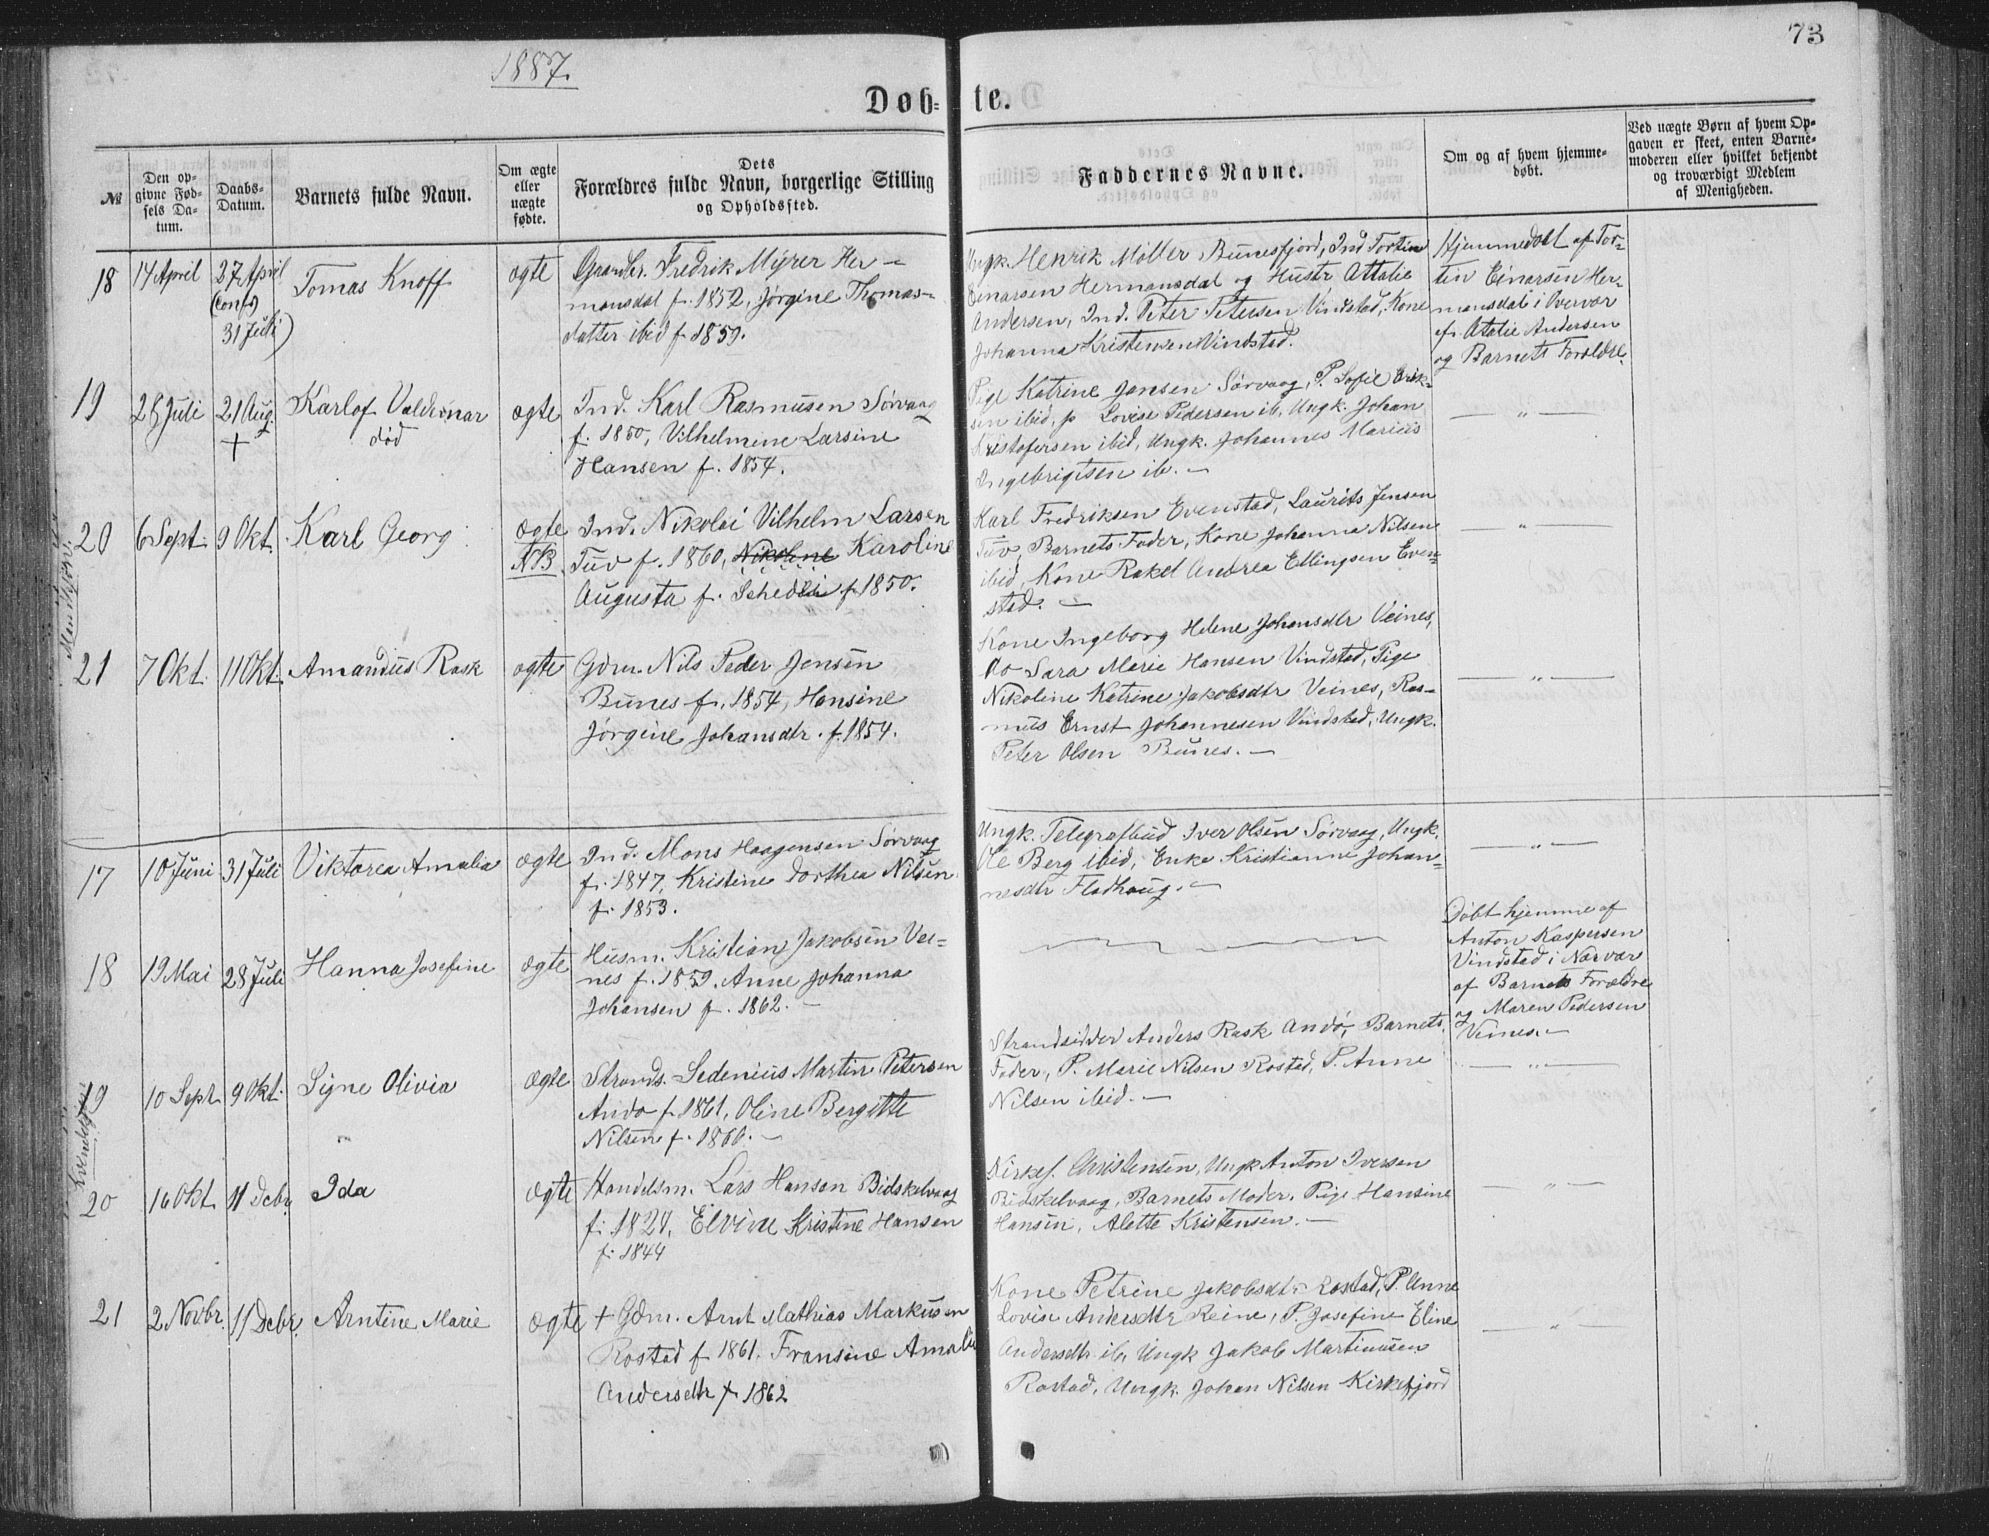 73
1887.
Døb-te.
№
Den op-
givne Fød-
sels Da-
tum.
Daabs-
Datum.
Barnets fulde Navn.
Om ægte
eller
uægte
fødte.
Dets
Forældres fulde Navn, borgerlige Stilling
og Opholdssted.
Faddernes Navne.
Om og af hvem hjemme-
døbt.
Ved uægte Børn af hvem Op-
gaven er skeet, enten Barne-
moderen eller hvilket bekjendt
og troværdigt Medlem
af Menigheden.
18
14 April
27 April
(Conf.
31 Juli)
Tomas Knoff
ægte
Fredrik Myrer Her-
mansdal f. 1852, Jørgine Thomas-
datter ibid f. 1859.
Ungk. Henrik Møller Bunesfjord, Ind Tortin
Einarsen Hermansdal og Hustr Attalie
Andersen, Ind. Peter Petersen Vindstad, Kone
Johanna Kristensen Vindstad.
Hjemmedøbt af Tor-
tin Einarsen Her-
mansdal i Overvær
af Atalie Andersen
og Barnets Forældre.
19
26 Juli
21 Aug.
+
Karlof Valdemar
død
ægte
Ind. Karl Rasmusen Sørvaag
f. 1850, Vilhelmine Larsine
Hansen f. 1854.
Pige Katrine Jansen Sørvaag, P. Sofie Erik-
sen ibid, p Lovise Pedersen ib, Ungk. Johan
Kristofersen ibid, Ungk. Johannes Marius
Ingebrigtsen ib. —
— „ —
20
6 Sept.
9 Okt.
Karl Georg
ægte
NB
Ind. Nikolai Vilhelm Larsen
Tuv f. 1860, Nikoline Karoline
Augusta f. Schedle f. 1850.
Karl Fredriksen Evenstad, Laurits Jensen
Tuv, Barnets Fader, Kone Johanna Nilsen
ibid, Kone Rakel Andrea Ellingsen Even-
stad. —
— „ —
21
7 Okt.
11 Okt.
Amandus Rask
ægte
Gdm. Nils Peder Jensen
Bunes f. 1854, Hansine
Jørgine Johansdtr. f. 1854.
Kone Ingeborg Helene Johansdtr Veines,
do Sara Marie Hansen Vindstad, Pige
Nikoline Katrine Jakobsdtr Veines, Ras-
mus Ernst Johannesen Vindstad, Ungk.
Peter Olsen Bunes. —
— „ —
17
10 Juni
31 Juli
Viktorea Amalia
ægte
Ind. Mons Haagensen Sørvaag
f. 1847, Kristine Dorthea Nilsen
f. 1853.
Ungk. Telegrafbud Iver Olsen Sørvaag, Ungk.
Ole Berg ibid, Enke Kristianne Johan-
nesdtr Fladhaug. —
— „ —
18
19 Mai
28 Juli
Hanna Josefine
ægte
Husm. Kristian Jakobsen Vei-
nes f. 1859. Anne Johanna
Johansen f. 1862. —
Døbt hjemme af
Anton Kaspersen
Vindstad i Nærvær
af Barnets Forældre
og Maren Pedersen
Veines. —
19
10 Sept
9 Okt.
Signe Olivia
ægte
Strands. Sedenius Martin Petersen
Andø f. 1861, Oline Bergitte
Nilsen f. 1860. —
Strandsidder Anders Rask Andø, Barnets
Fader, P. Marie Nilsen Rostad, P. Anne
Nilsen ibid. —
— „ —
20
16 Okt.
11 Debr.
Ida
ægte
Handelsm. Lars Hansen Bidskelvaag
f. 1827, Elvine Kristine Hansen
f. 1844
Kirkes. Christensen, Ungk Anton Iversen
Bidskelvaag, Barnets Moder, Pige Hansine
Hansen, Alette Kristensen. —
— „ —
21
2 Novbr.
11 Debr.
Arntine Marie
ægte
+ Gdm. Arnt Mathias Markusen
Rostad f 1861. Fransine Amalia
Andersdtr f. 1862
Kone Petrine Jakobsdtr Rostad, P. Anne
Lovise Andersdtr Reine, P. Josefine Eline
Andersdtr ib, Ungk Jakob Martinusen
Rostad, Ungk. Johan Nilsen Kirkefjord
— „ —